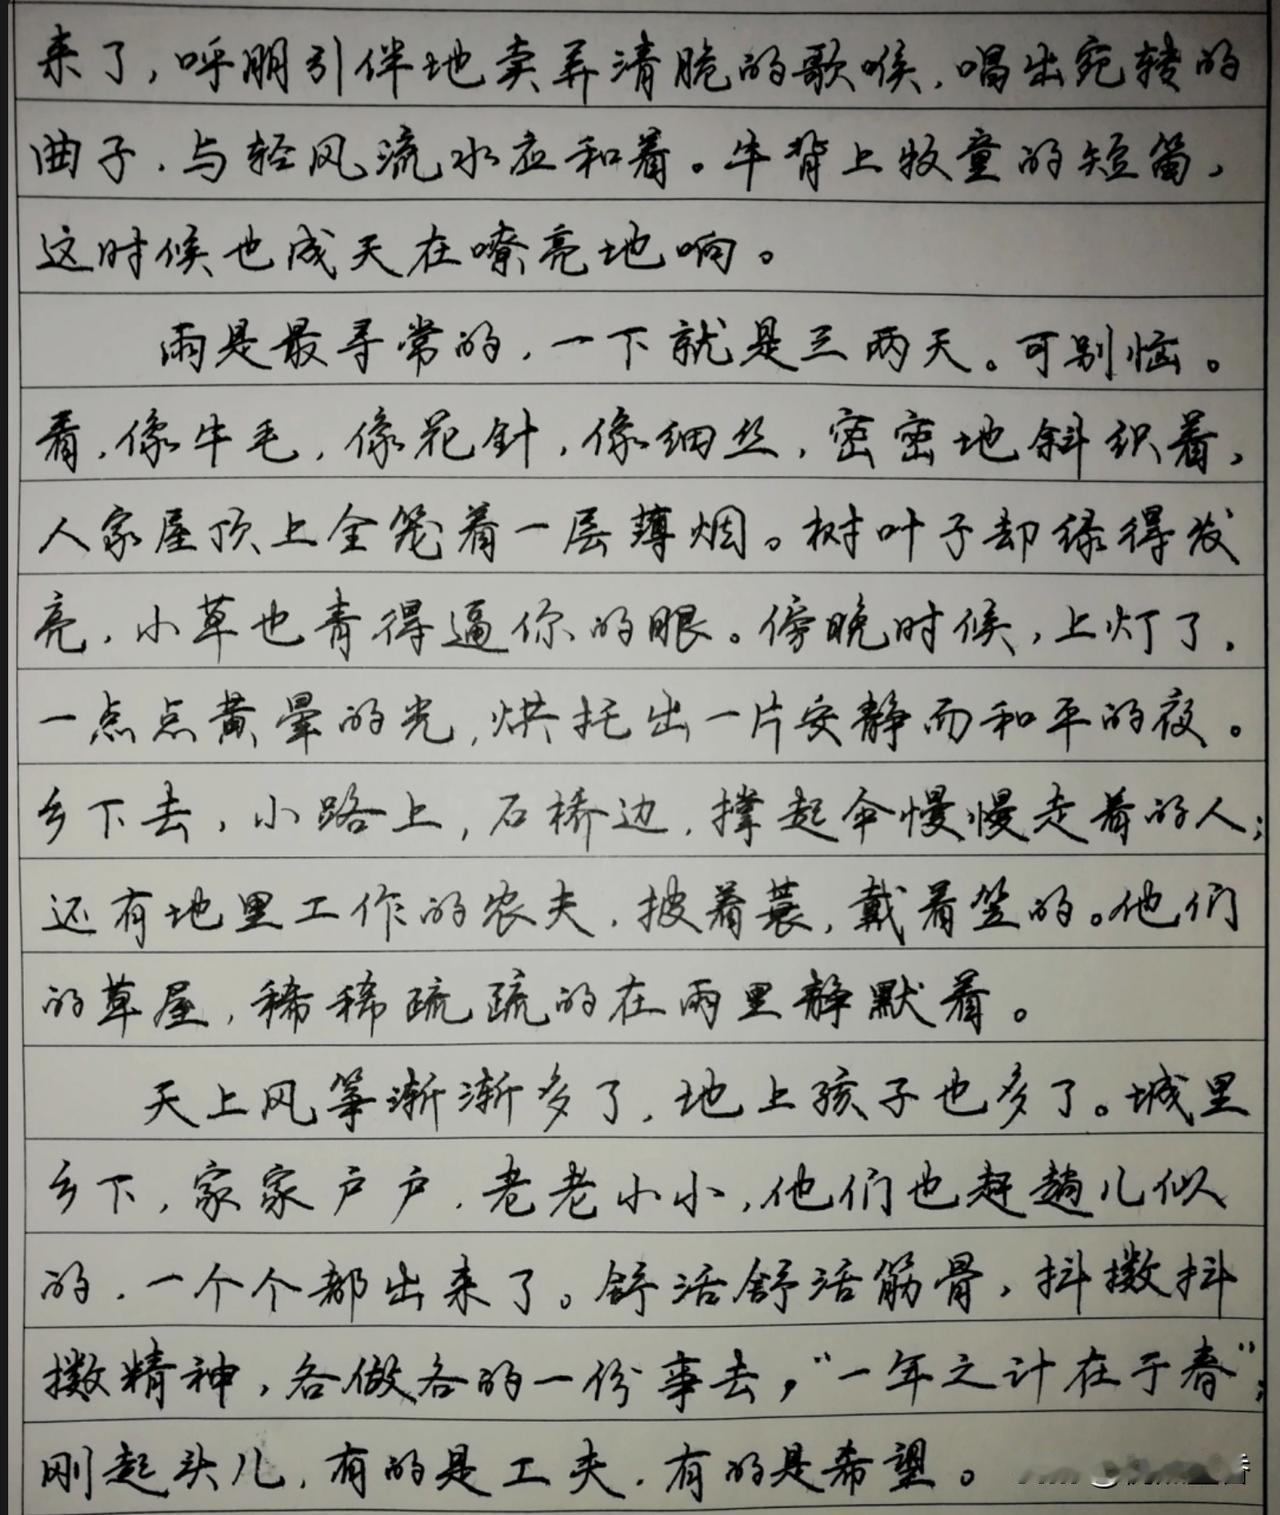 来了，呼朋引伴地卖弄清脆的歌喉，唱出宛转的
曲子，与轻风流水应和着。牛背上牧童的短笛，
这时候也成天在嘹亮地响。
雨是最寻常的，一下就是三两天。可别恼。
看，像牛毛，像花针，像细丝，密密地斜织着，
人家屋顶上全笼着一层薄烟。树叶子却绿得发
亮，小草也青得逼你的眼。傍晚时候，上灯了，
一点点黄晕的光，烘托出一片安静而和平的夜。
乡下去，小路上，石桥边，撑起伞慢慢走着的人；
还有地里工作的农夫，披着蓑，戴着笠的。他们
的草屋，稀稀疏疏的在雨里静默着。
天上风筝渐渐多了，地上孩子也多了。城里
乡下，家家户户，老老小小，他们也赶趟儿似
的，一个个都出来了。舒活舒活筋骨，抖擞抖
擞精神，各做各的一份事去，“一年之计在于春”；
刚起头儿，有的是工夫，有的是希望。